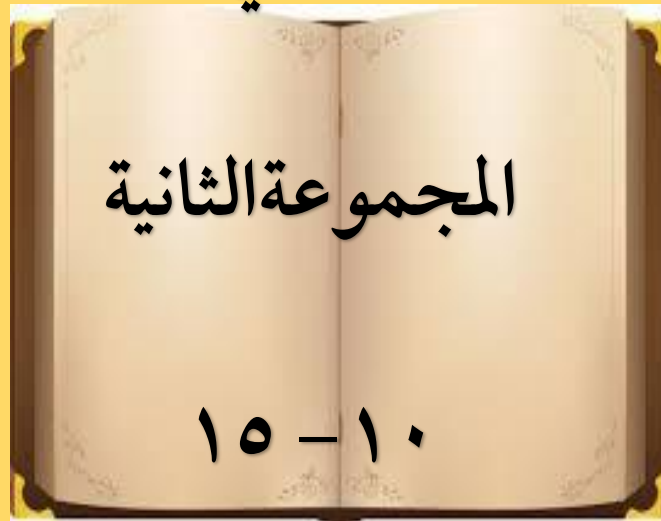 المجموعةالثانية
١٠ – ١٥